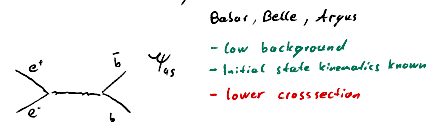 Babar, Belle, Argus
- low background
- Initial state kinematics known
- lower crosssection
e⁺
b̄
ψ₄ₛ
e⁻
b